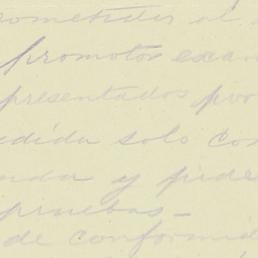 cometidas al
promotor exam
presentados por
edida solo con
nda y pide
pruebas_
de conformid